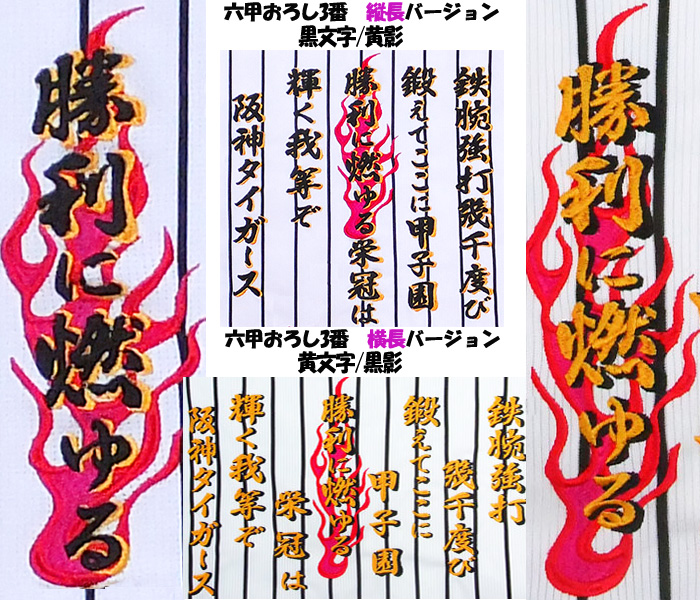 六甲おろし3番　縦長バージョン
黒文字/黄影
鉄腕強打幾千度び
鍛えてここに甲子園
勝利に燃ゆる栄冠は
輝く我等ぞ
阪神タイガース
六甲おろし3番　横長バージョン
黄文字/黒影
鉄腕強打
幾千度び
鍛えてここに
甲子園
勝利に燃ゆる
栄冠は
輝く我等ぞ
阪神タイガース
勝利に燃ゆる
勝利に燃ゆる